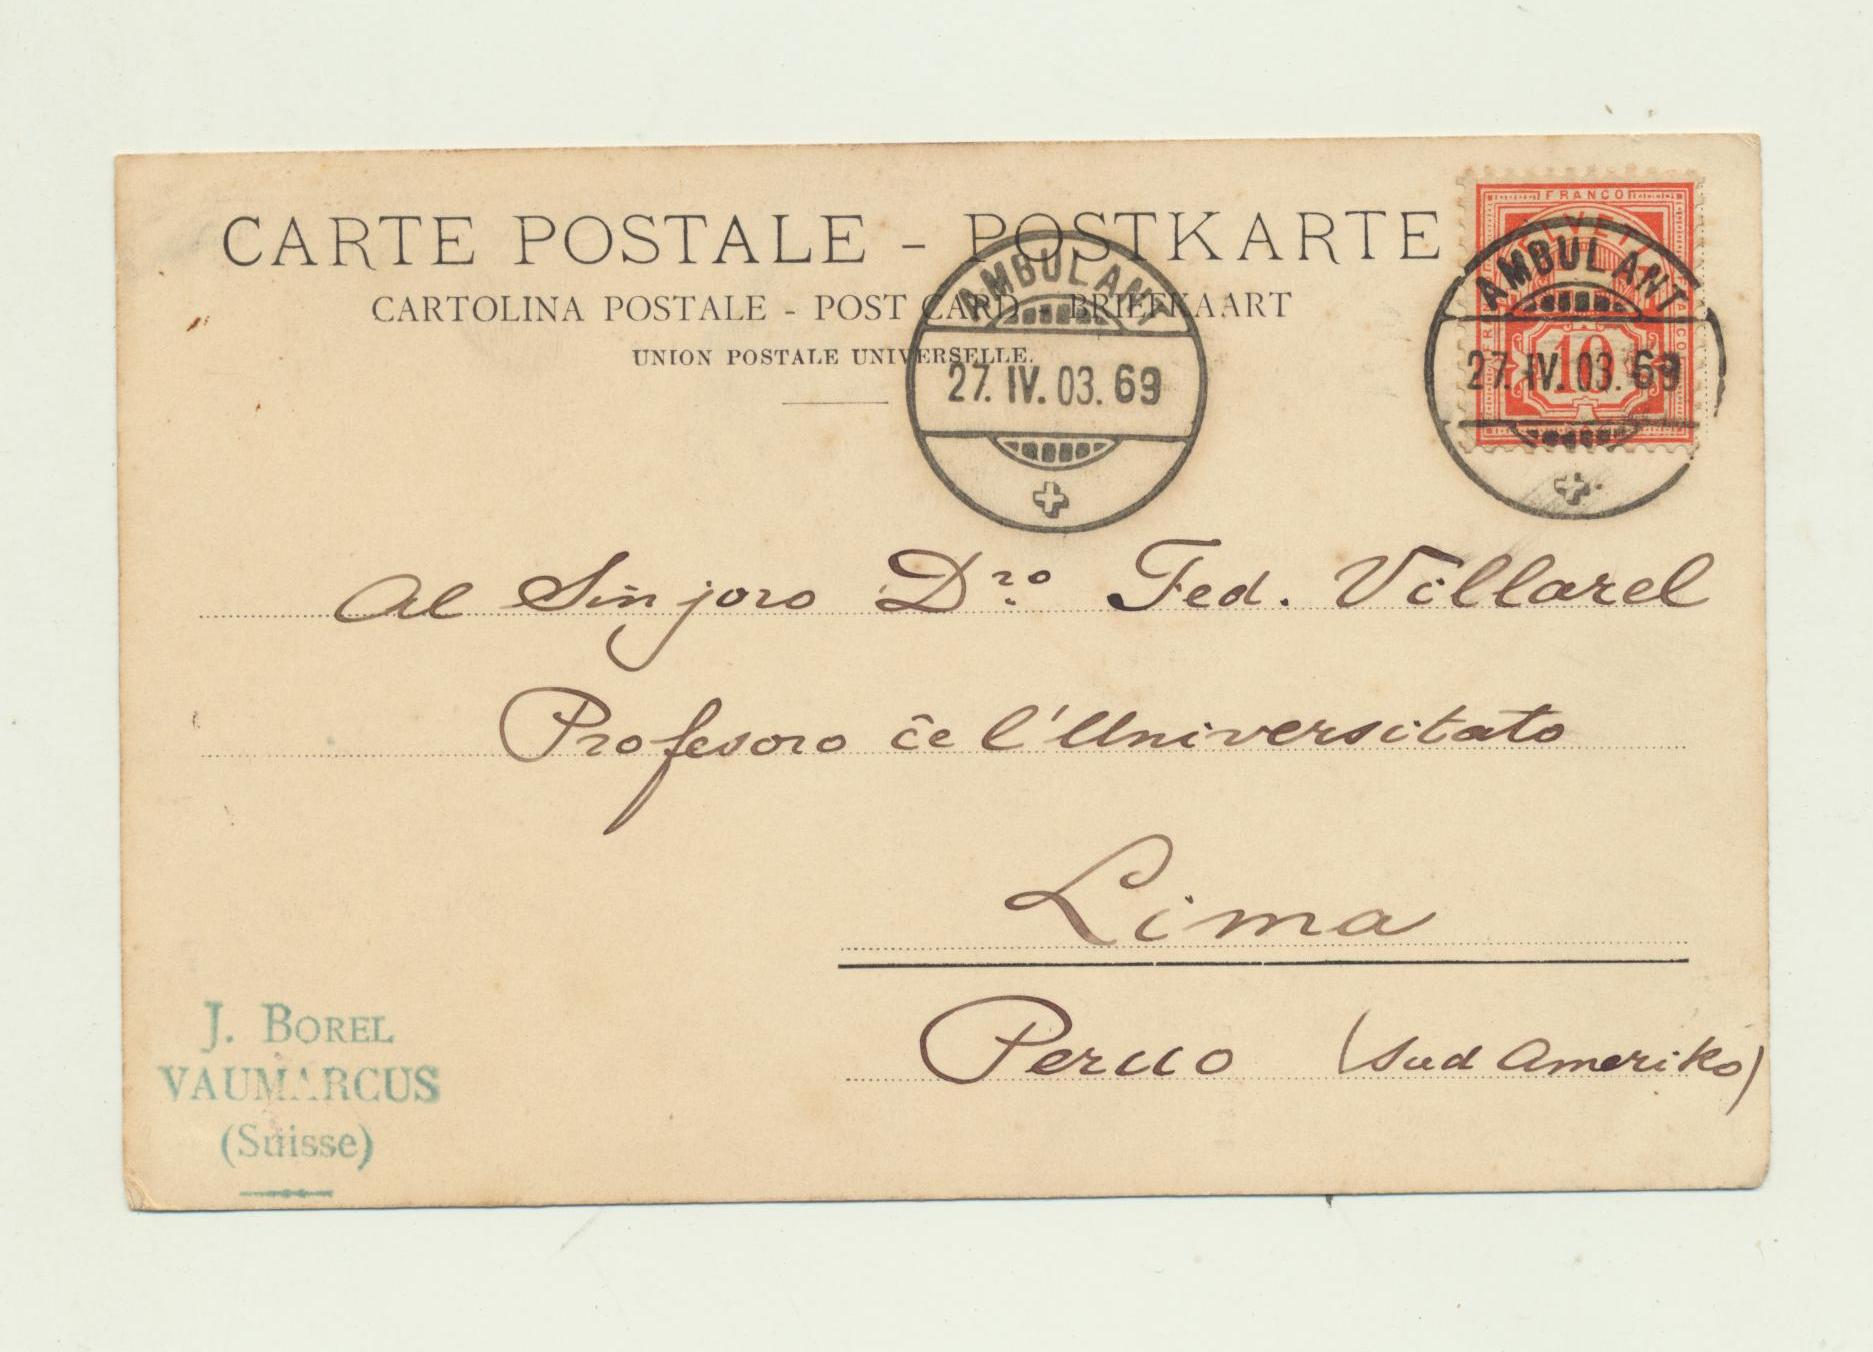 CARTE POSTALE - POSTKARTE
CARTOLINA POSTALE - POST CARD - BRIEFKAART
UNION POSTALE UNIVERSELLE.
FRANCO
HELVETIA
10
AMBULANT
27. IV. 03. 69
AMBULANT
27. IV. 03. 69
Al Sinjoro Dro. Fed. Villarel
Profesoro ĉe l'Universitato
Lima
Peruo (Sud Ameriko)
J. BOREL
VAUMARCUS
(Suisse)